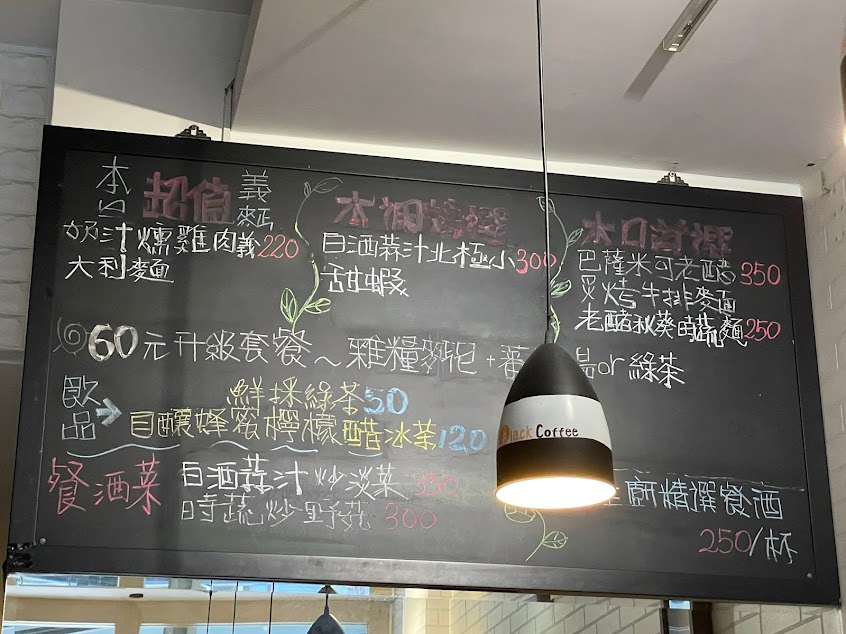 本日 超值 義麵
奶汁燻雞肉義 220
大利麵
本週
白酒蒜汁北極小 300
甜蝦
本日
巴薩米可老醋 350
炙烤牛排麵
老醋秋葵時蔬麵 250
60元升級套餐～雜糧麵包+蕃 湯or綠茶
飲品
鮮採綠茶 50
自釀蜂蜜檸檬醋冰茶 120
餐酒菜
白酒蒜汁炒淡菜 350
時蔬炒野菇 300
Black Coffee
廚精選餐酒
250/杯